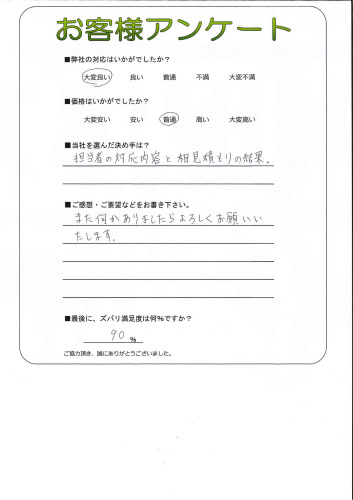 お客様アンケート
■弊社の対応はいかがでしたか?
大変良い 良い 普通 不満 大変不満
■価格はいかがでしたか?
大変安い 安い 普通 高い 大変高い
■当社を選んだ決め手は?
担当者の対応内容と相見積もりの結果。
■ご感想・ご要望などをお書き下さい。
また何かありましたらよろしくお願いい
たします。
■最後に、ズバリ満足度は何%ですか?
90 %
ご協力頂き、誠にありがとうございました。